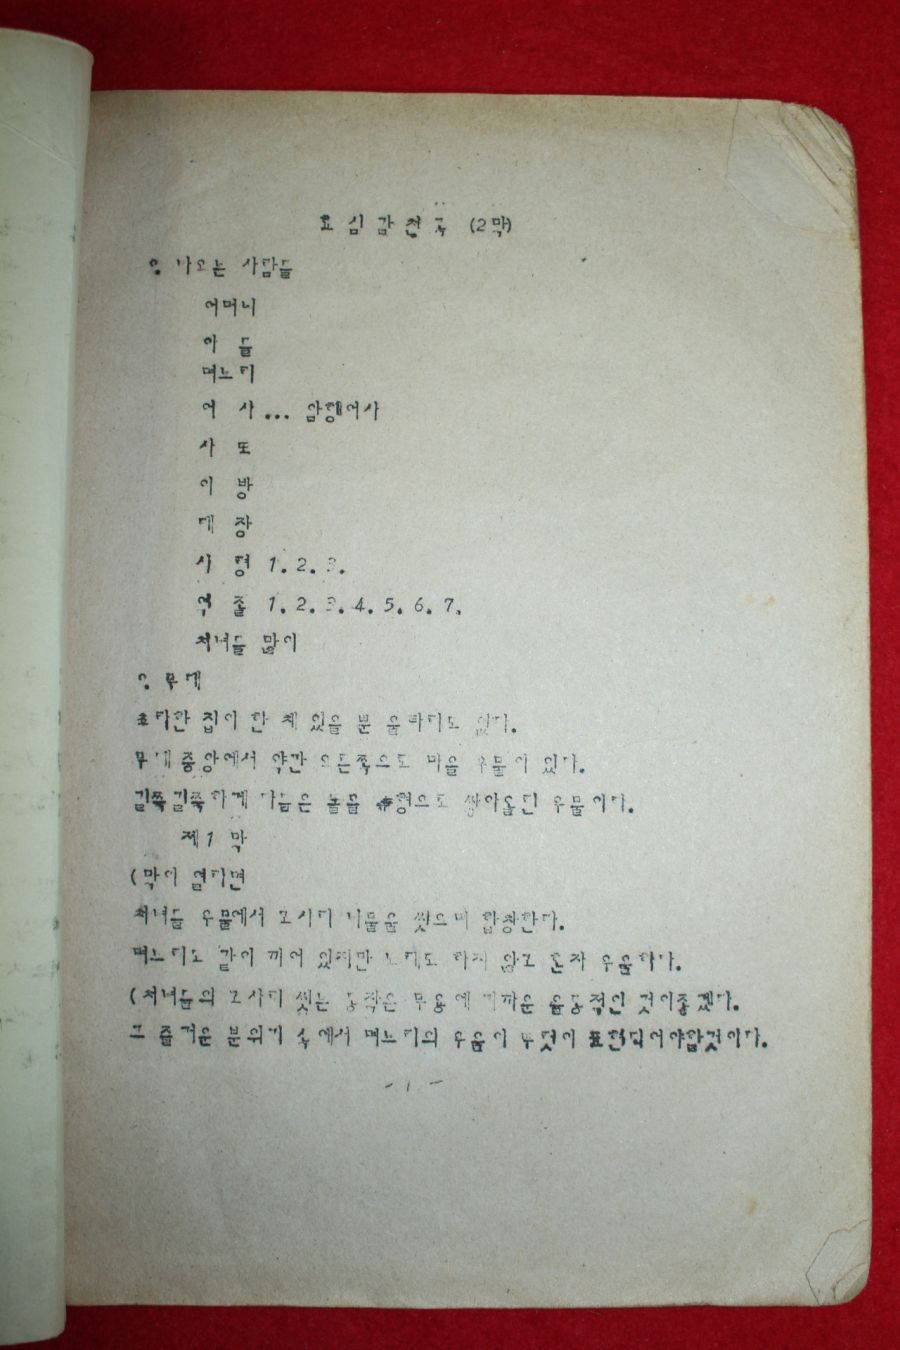 효심감천곡 (2막)
○. 나오는 사람들
어머니
아 들
며느리
어 사... 암행어사
사 또
이 방
대 장
사 령 1. 2. 3.
역 졸 1. 2. 3. 4. 5. 6. 7.
처녀들 많이
○. 무대
초라한 집이 한 채 있을 뿐 울타리도 없다.
무대 중앙에서 약간 오른쪽으로 마을 우물이 있다.
길쭉길쭉하게 다듬은 돌을 井형으로 쌓아올린 우물이다.
제1 막
(막이 열리면
처녀들 우물에서 노래 나물을 씻으며 합창한다.
며느리도 같이 끼어 있지만 노래도 하지 않고 혼자 우울하다.
(처녀들의 씻는 동작은 무용에 가까운 율동적인 것이좋겠다.
그 즐거운 분위기 속에서 며느리의 우울이 무엇이 표현되어야할것이다.
- 1 -